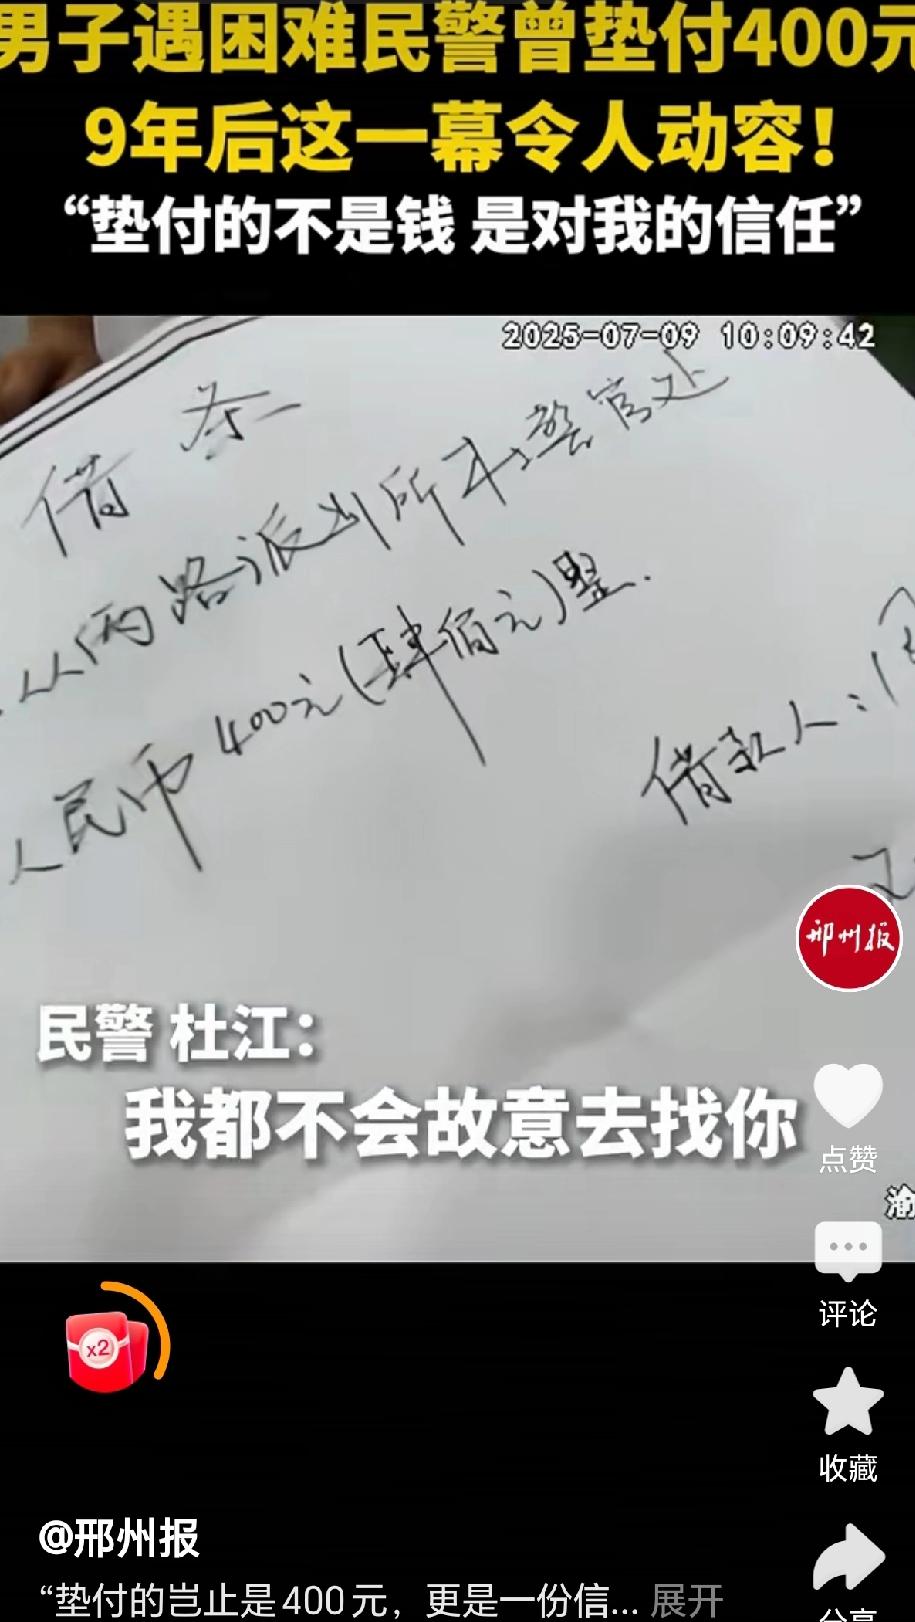 男子遇困难民警曾垫付400元
9年后这一幕令人动容！
“垫付的不是钱 是对我的信任”
2025-07-09 10:09:42
借条
从两路派出所杜警官处
人民币400元(肆佰元)整.
借款人:周
民警 杜江：
我都不会故意去找你
邢州报
点赞
渝
评论
x2
收藏
@邢州报
“垫付的岂止是400元，更是一份信... 展开
分享